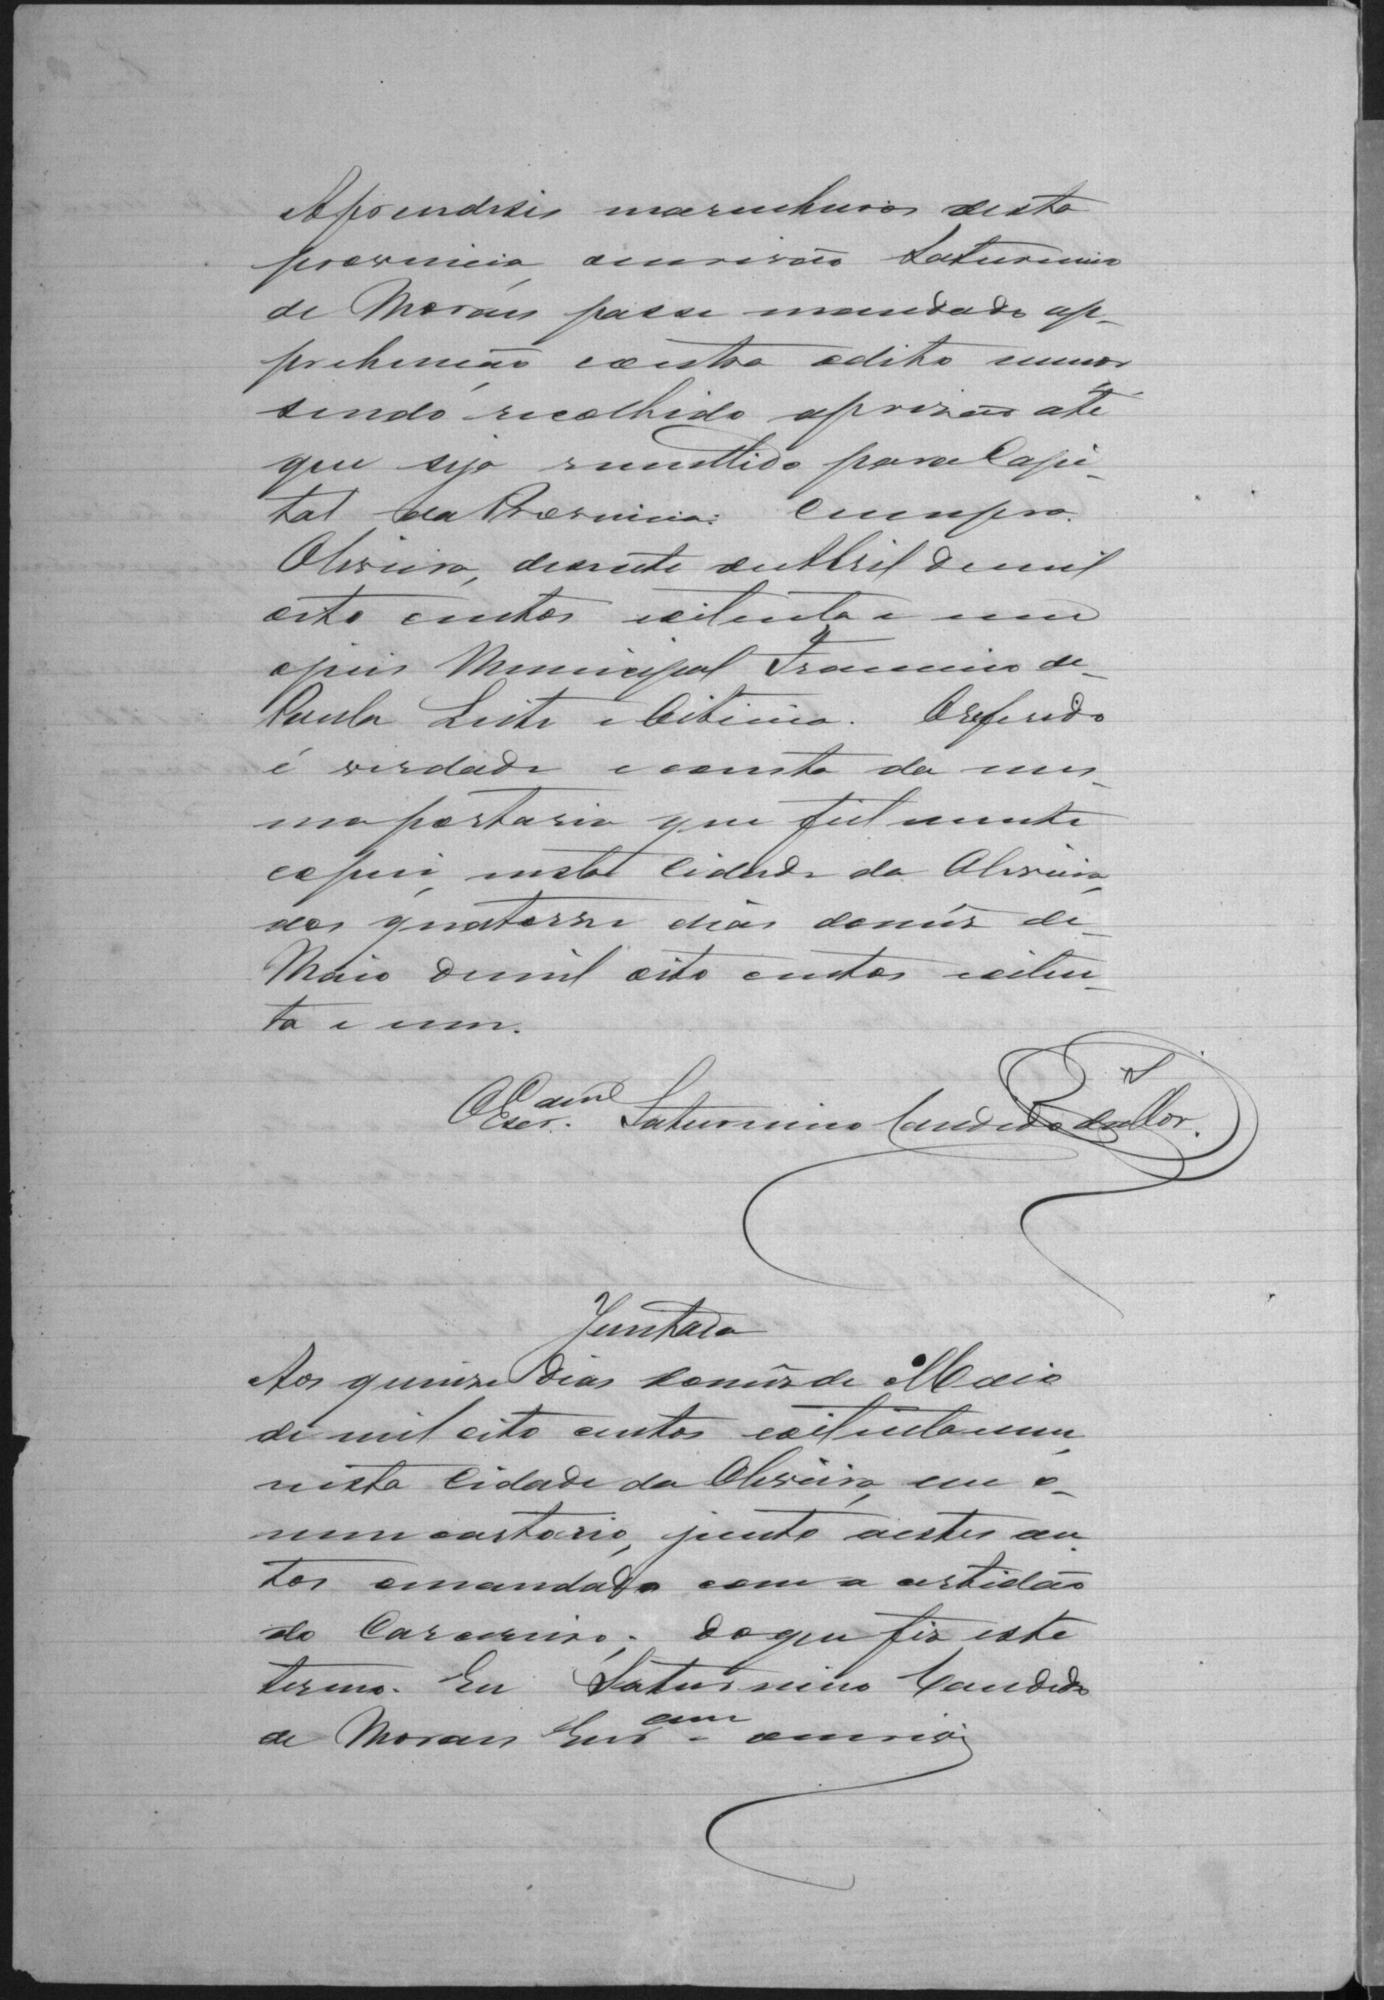 Aprendises marinheiros desta
provincia, oescrivão Saturnino
de Moraes passe mandado ap-
prehenção contra odito menor
sendo recolhido aprizão até
que seja remettido para Capi-
tal da Provincia. Cumpra.
Oliveira, desenete de Abril de mil
oito centos eoitenta e um
ojuis Municipal Francisco de
Paula Leite e Oiticica. Oreferido
é verdade econsta da mes-
ma portaria que fielmente
copiei, nesta Cidade da Oliveira,
aos quatorze dias domês de
Maio de mil oito centos eoiten-
ta e um.
O Escr.am Saturnino Candido de Mor.s
Juntada
Aos quinze dias domês de Maio
de mil oito centos eoitenta eum,
nesta Cidade da Oliveira, em o
meu cartorio, junto aestes au
tos omandado com a certidão
do Carcereiro. Doque fiz este
termo. Eu Saturnino Candido
de Moraes Escr.am oescrevi